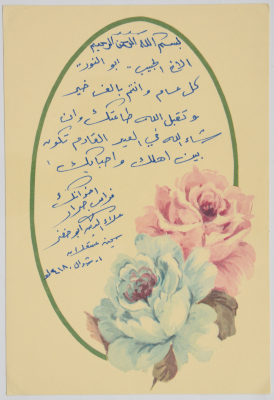 بسم الله الرحمن الرحيم
الاخ الطيب - ابو النور -
كل عام وانتم بالف خير
وتقبل الله طاعتك وان
شاء الله في العيد القادم تكون
بين اهلك واحبابك !
اخوانك
فراس جرار
علاء الدين ابو خضر
سجن عسقلان